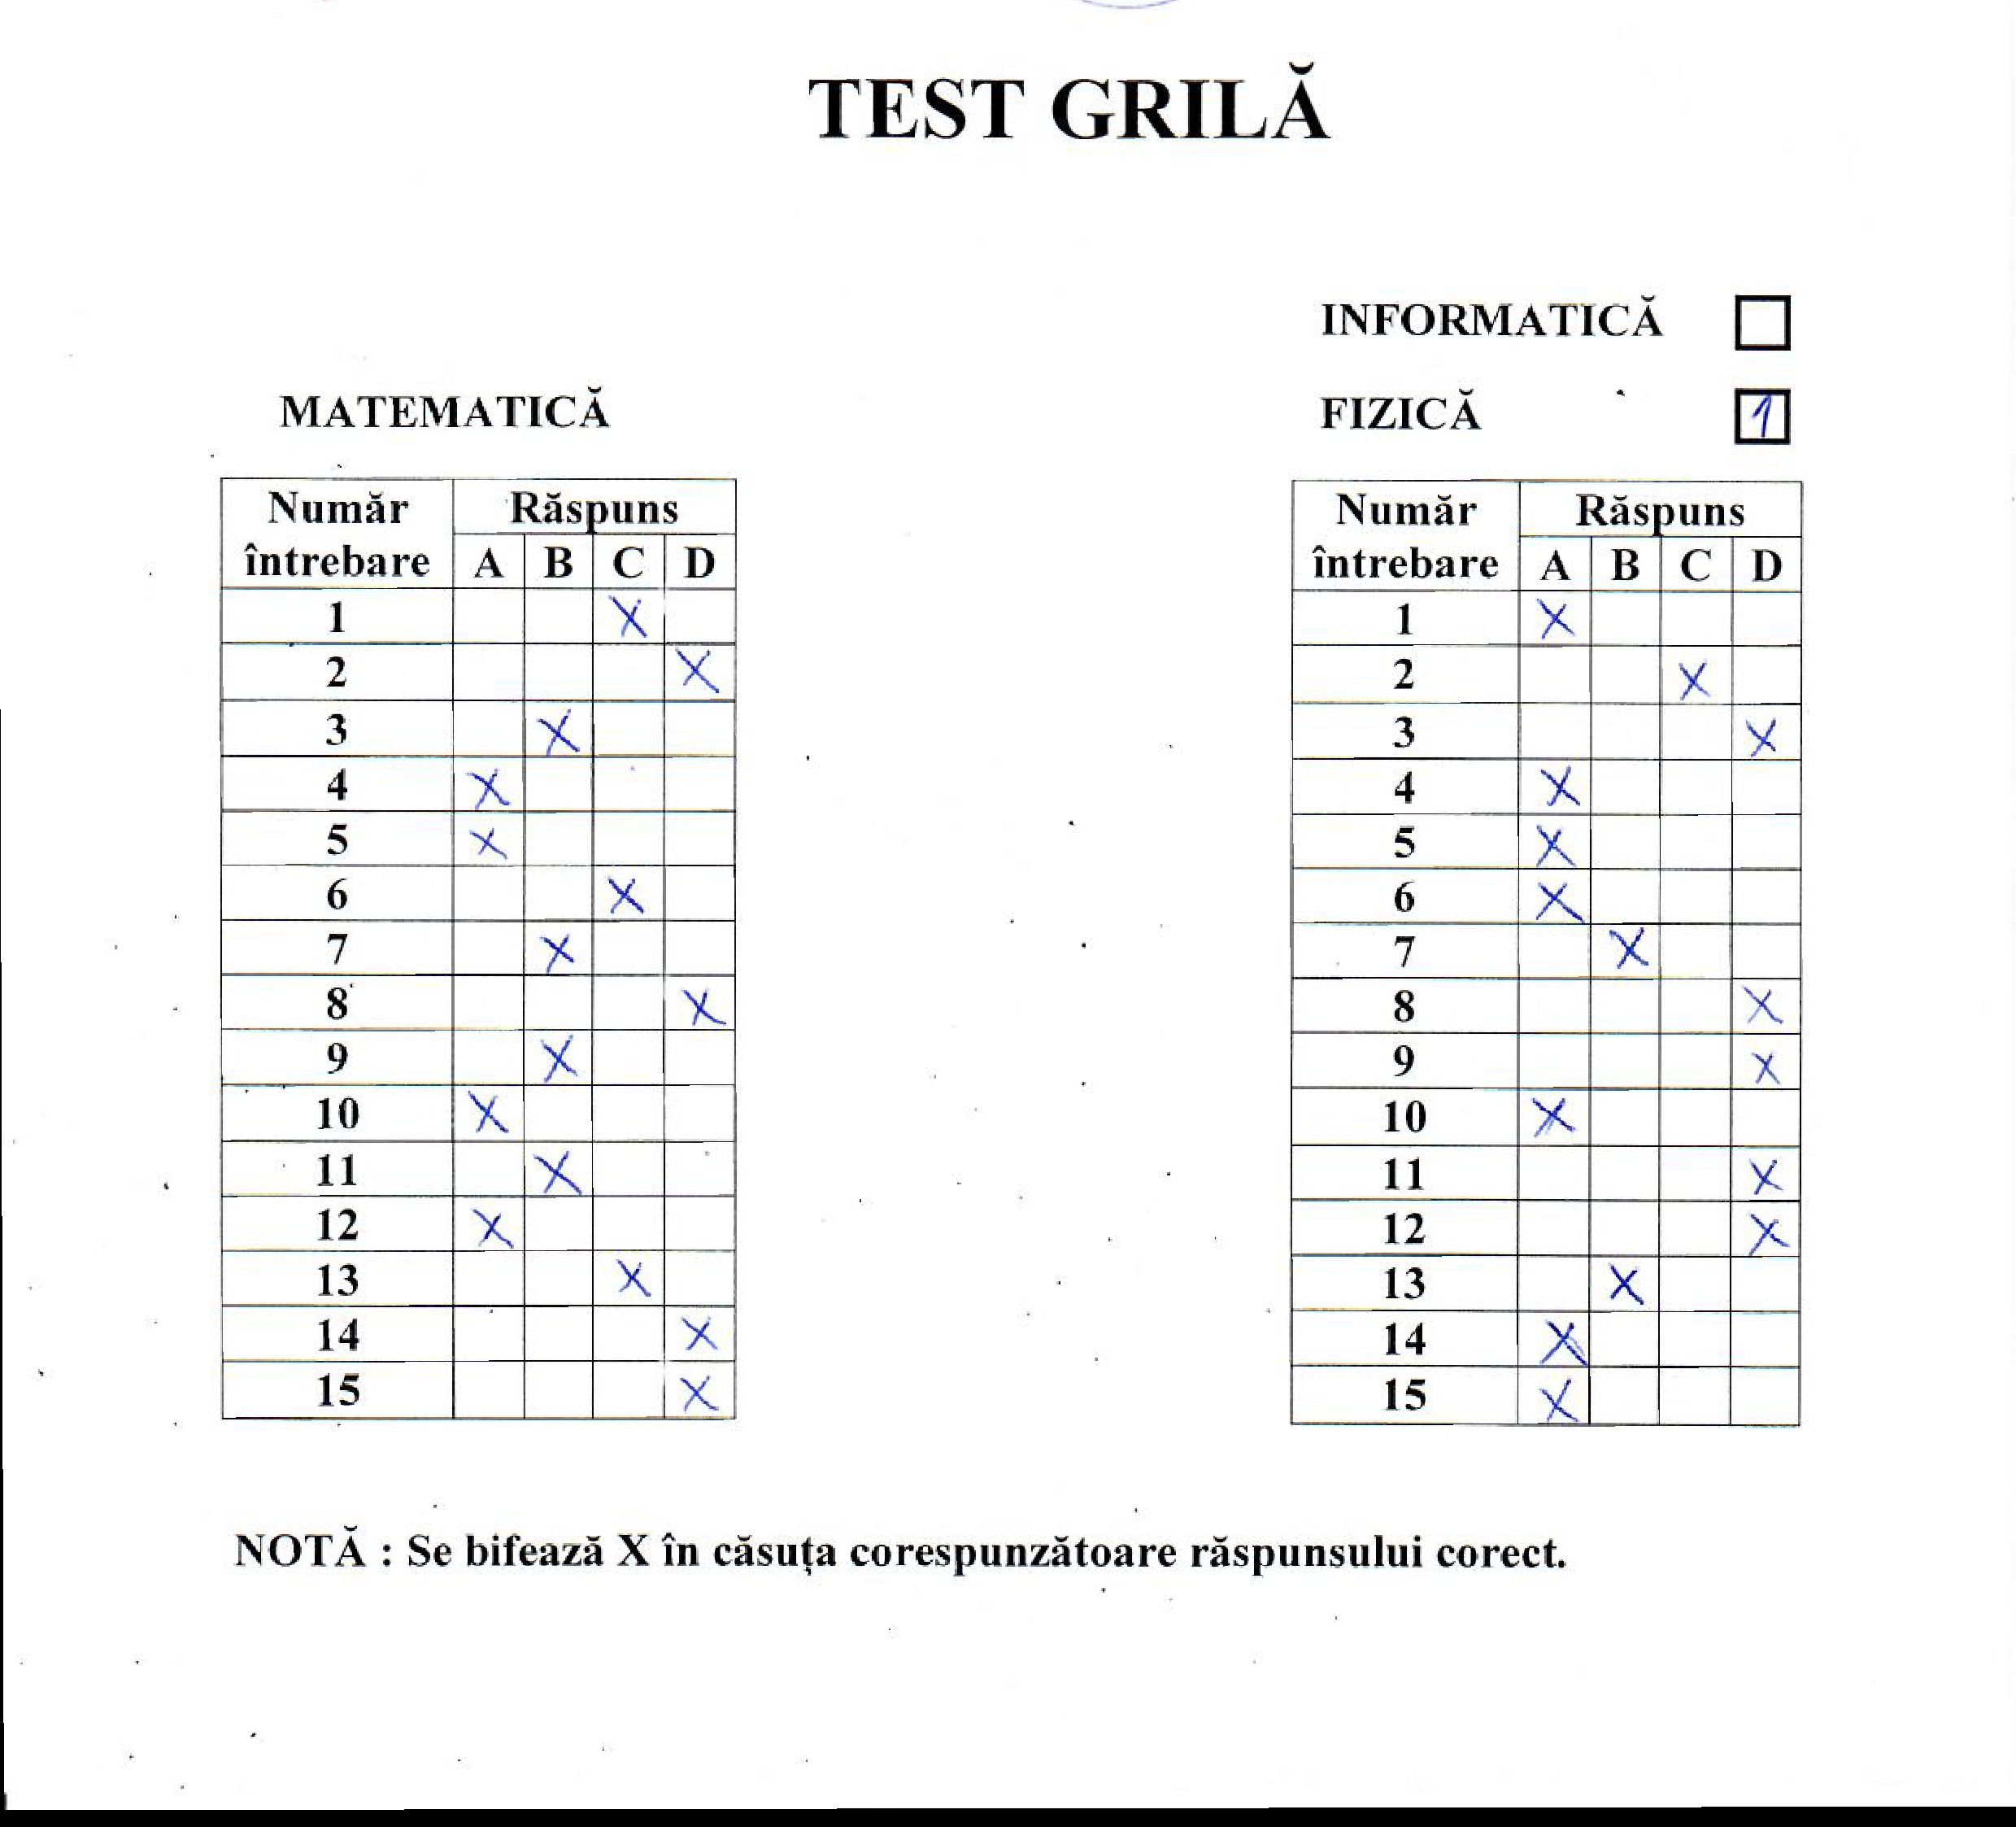 TEST GRILĂ
INFORMATICĂ
MATEMATICĂ
FIZICĂ 1
Număr întrebare Răspuns
A B C D
1 X
2 X
3 X
4 X
5 X
6 X
7 X
8 X
9 X
10 X
11 X
12 X
13 X
14 X
15 X
Număr întrebare Răspuns
A B C D
1 X
2 X
3 X
4 X
5 X
6 X
7 X
8 X
9 X
10 X
11 X
12 X
13 X
14 X
15 X
NOTĂ : Se bifează X în căsuța corespunzătoare răspunsului corect.